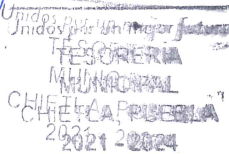 Unidos por un mejor futuro
TESORERIA
MUNICIPAL
CHIETLA, PUEBLA
2021 - 2024